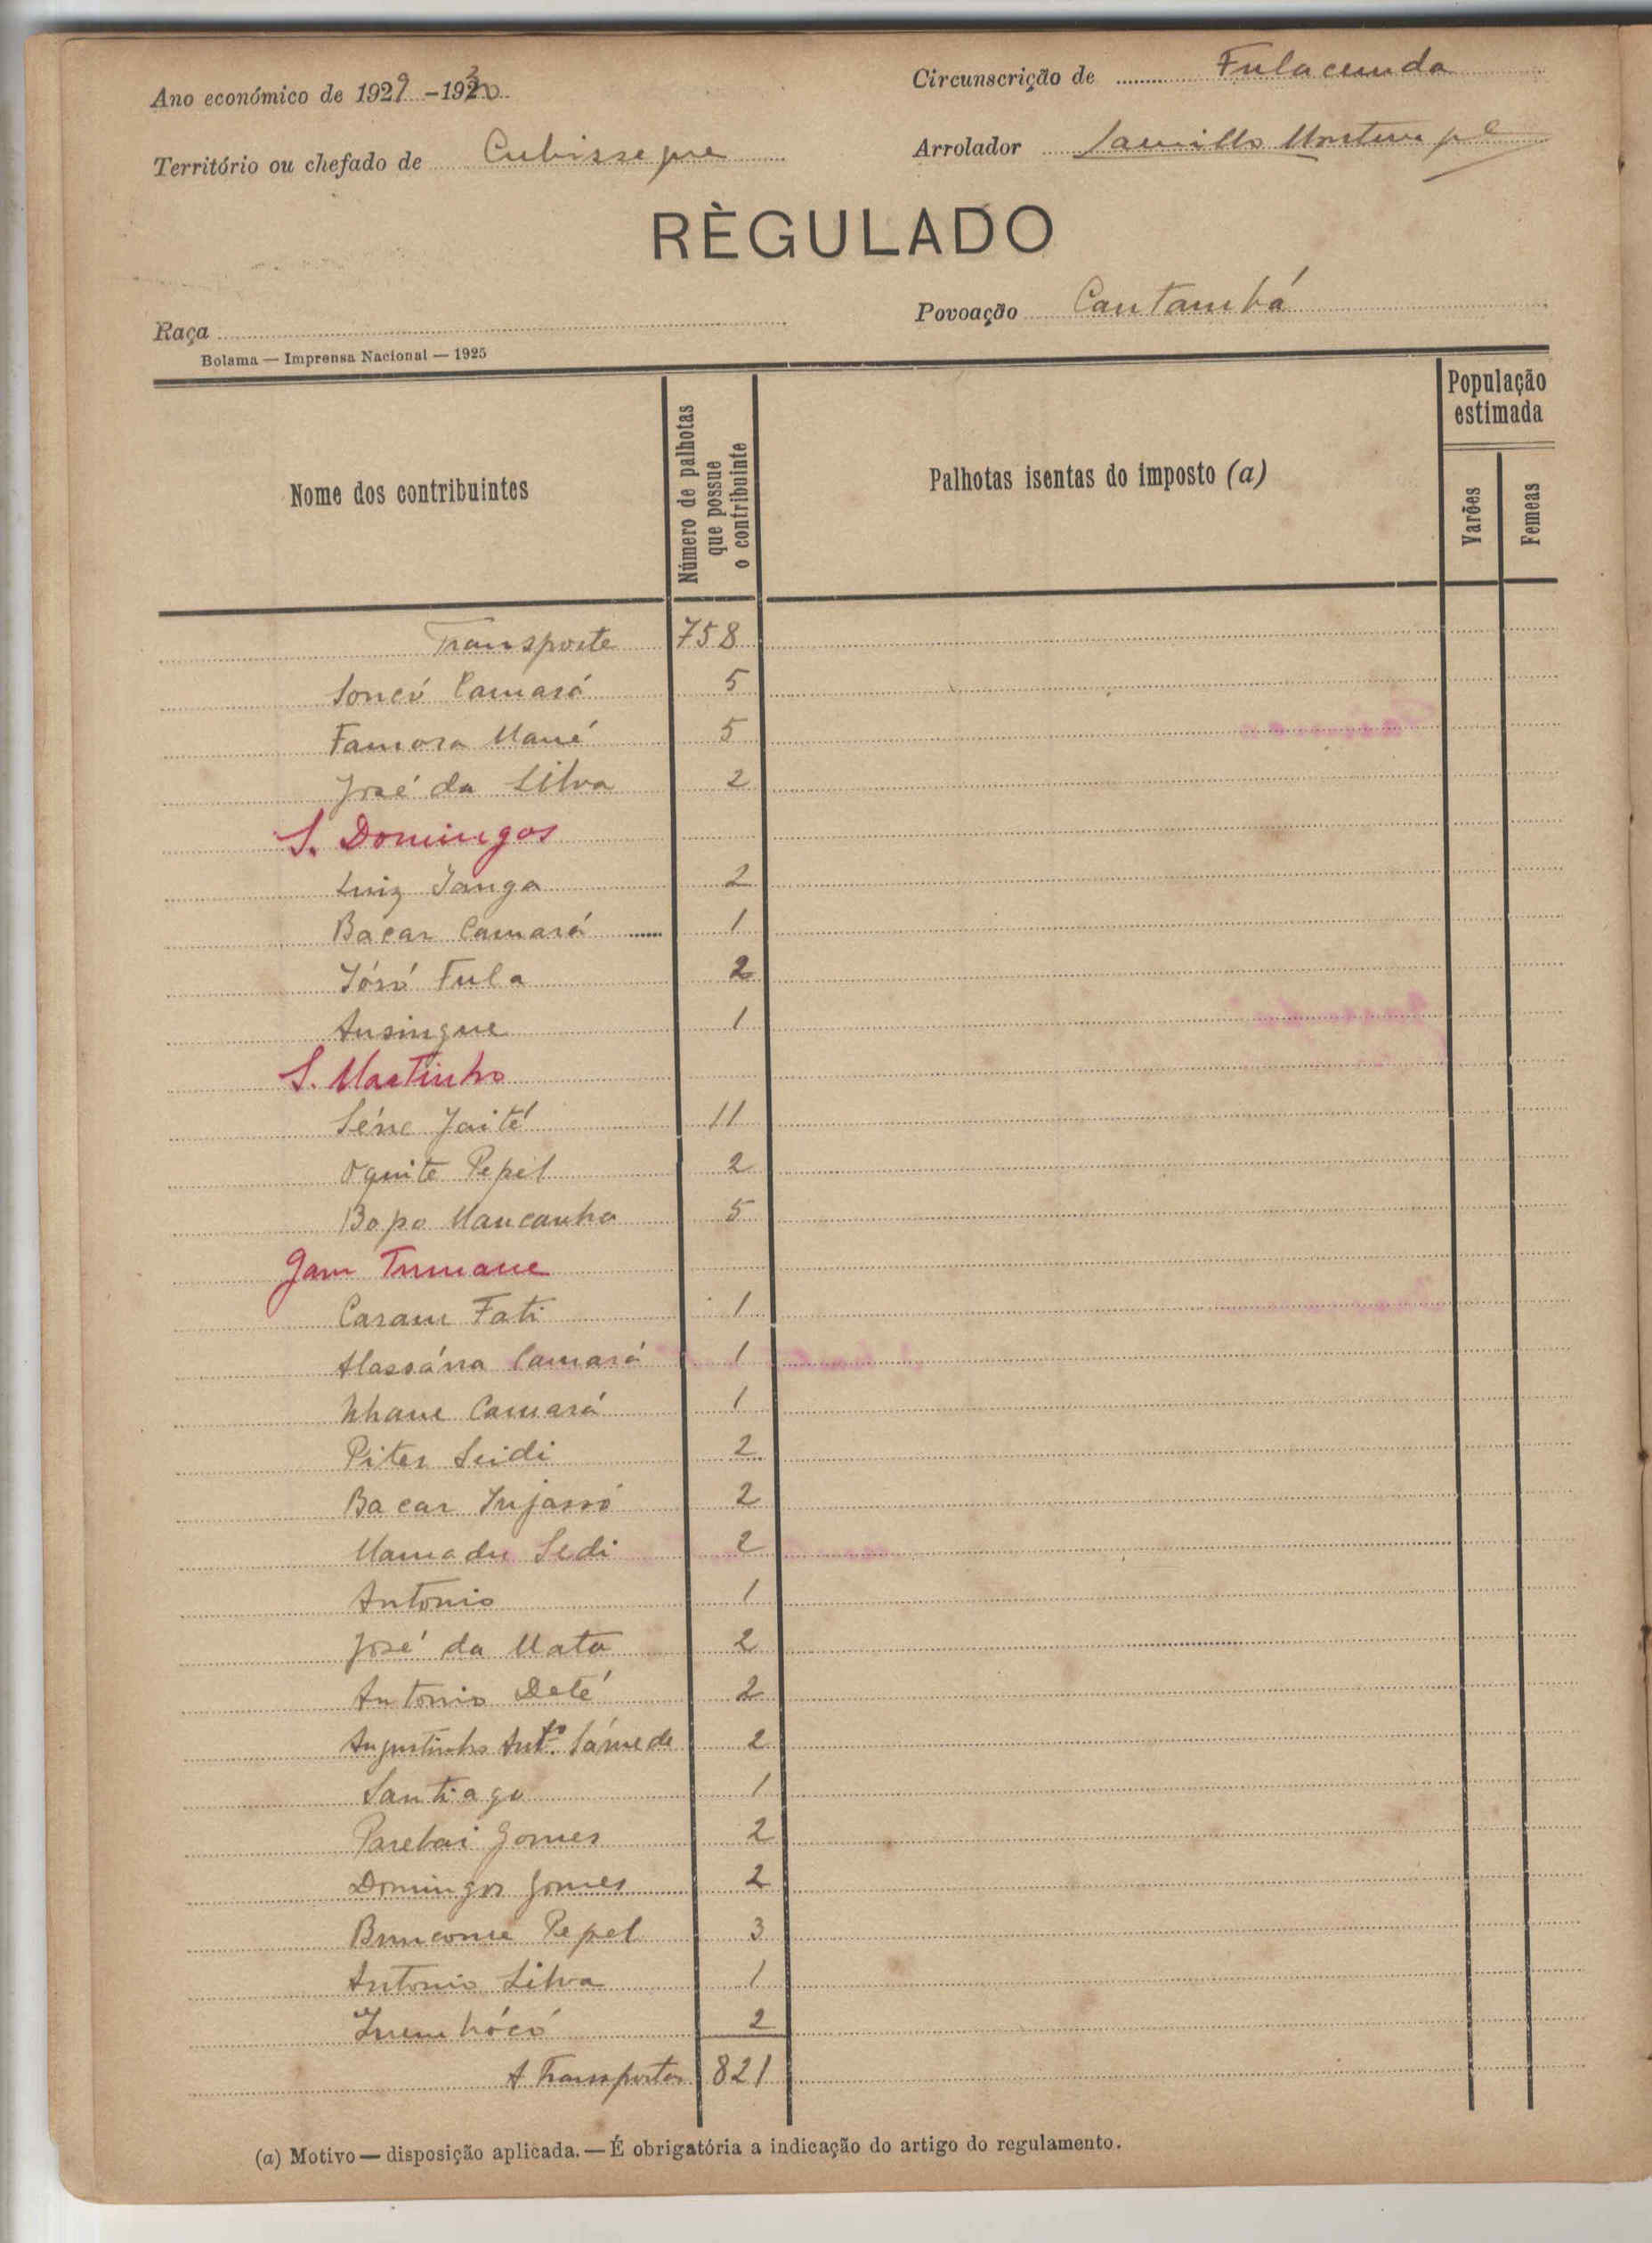 Ano económico de 1929-1930
Circunscrição de Fulacunda
Território ou chefado de Cubisseque
Arrolador
RÈGULADO
Raça
Povoação Cantambá
Bolama — Imprensa Nacional — 1925
Nome dos contribuintes
Número de palhotas que possue o contribuinte
Palhotas isentas do imposto (a)
População estimada
Varões
Femeas
Transporte 758
Soncó Camará 5
Famora Mané 5
José da Silva 2
S. Domingos
Luiz Sanga 2
Bacar Camará 1
Fula 2
Ansingue 1
S. Martinho
Séne Jaité 11
Oquite Pepel 2
Bopo Mancanha 5
Gam Tumane
Casam Fati 1
Alassána Camará 1
Nhane Camará 1
Piter Seidi 2
Bacar Injassó 2
Mamadu Sedi 2
Antonio 1
José da Mata 2
Antonio Deté 2
Augustinho Antº. 2
Santiago 1
Gomes 2
Domingos Gomes 2
Pepel 3
Antonio Silva 1
2
A Transportar 821
(a) Motivo — disposição aplicada. — É obrigatória a indicação do artigo do regulamento.